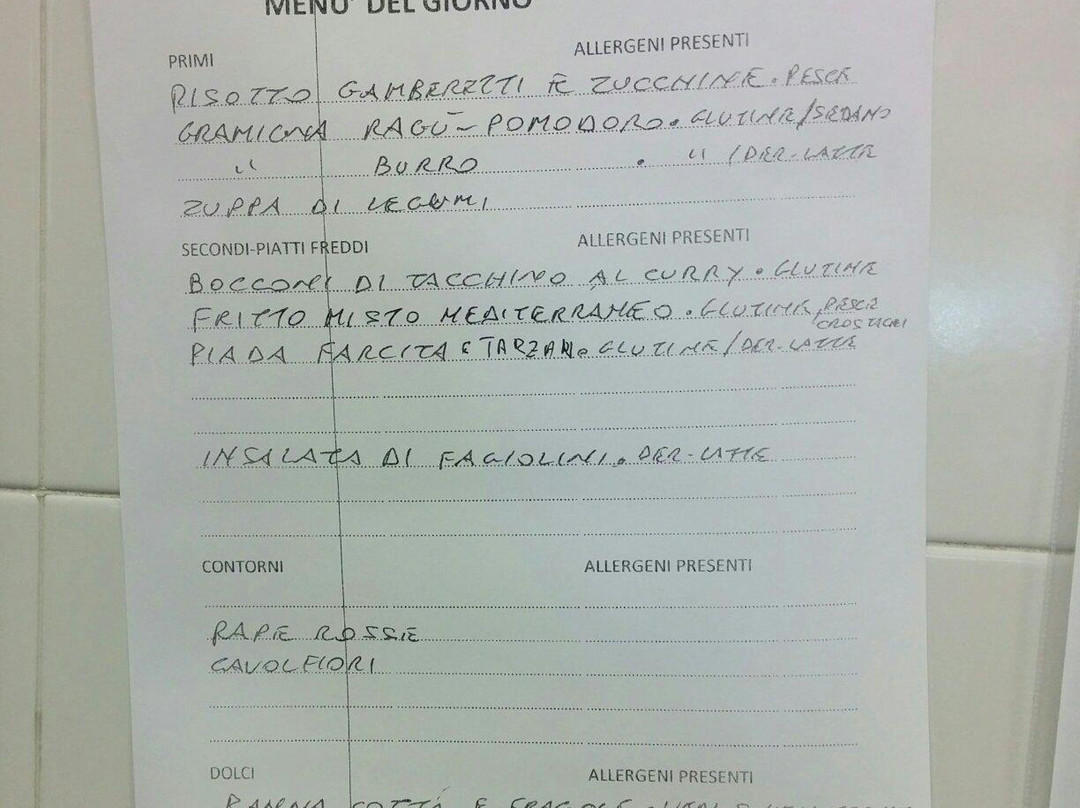 MENU' DEL GIORNO
PRIMI ALLERGENI PRESENTI
RISOTTO GAMBERETTI E ZUCCHINE. PESCE
GRAMIGNA RAGÙ - POMODORO. GLUTINE/SEDANO
" BURRO . " /DER-LATTE
ZUPPA DI LEGUMI
SECONDI-PIATTI FREDDI ALLERGENI PRESENTI
BOCCONI DI TACCHINO AL CURRY. GLUTINE
FRITTO MISTO MEDITERRANEO. GLUTINE, PESCE
CROSTACEI
PIADA FARCITA E TARZAN. GLUTINE/DER-LATTE
INSALATA DI FAGIOLINI. DER-LATTE
CONTORNI ALLERGENI PRESENTI
RAPE ROSSE
CAVOLFIORI
DOLCI ALLERGENI PRESENTI
PANNA COTTA E FRAGOLE